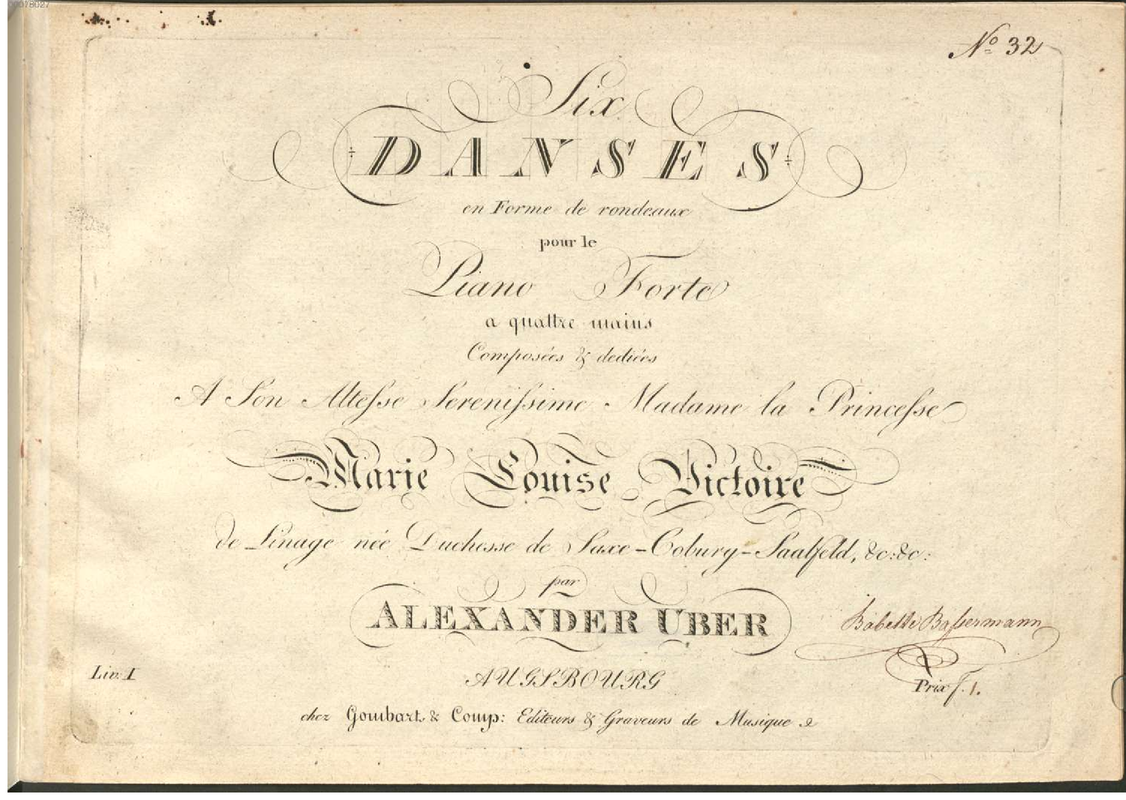 No 32
Six
DANSES
en Forme de rondeaux
pour le
Piano Forte
a quattre mains
Composées & dediées
A Son Altesse Serenissime Madame la Princesse
Marie Louise Victoire
de Linage née Duchesse de Saxe-Coburg-Saalfeld, &c:&c:
par
ALEXANDER UBER
Babette Bassermann
Liv: I
AUGSBOURG
Prix f. 1.
chez Gombart & Comp: Editeurs & Graveurs de Musique